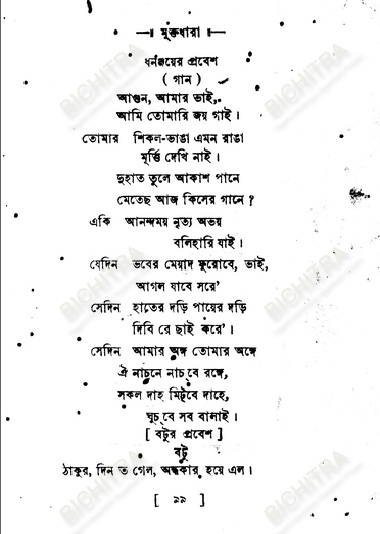 মুক্তধারা
ধনঞ্জয়ের প্রবেশ
( গান )
আগুন, আমার ভাই,
আমি তোমারি জয় গাই ।
তোমার শিকল-ভাঙা এমন রাঙা
মূর্ত্তি দেখি নাই ।
দুহাত তুলে আকাশ পানে
মেতেছ আজ কিসের গানে ?
একি আনন্দময় নৃত্য অভয়
বলিহারি যাই ।
যেদিন ভবের মেয়াদ ফুরোবে, ভাই,
আগল যাবে সরে'
সেদিন হাতের দড়ি পায়ের দড়ি
দিবি রে ছাই করে' ।
সেদিন আমার অঙ্গ তোমার অঙ্গে
ঐ নাচনে নাচ্‌বে রঙ্গে,
সকল দাহ মিট্‌বে দাহে,
ঘুচ্‌বে সব বালাই ।
[ বটুর প্রবেশ ]
বটু
ঠাকুর, দিন ত গেল, অন্ধকার হয়ে এল ।
[ ৯৯ ]
BICHITRA
BICHITRA
BICHITRA
BICHITRA
BICHITRA
BICHITRA